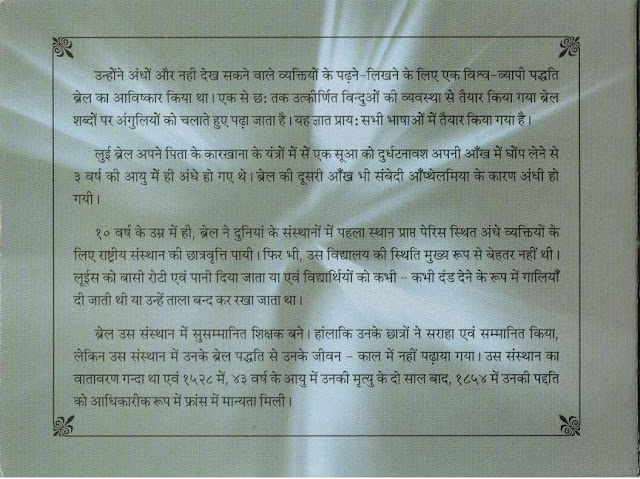 उन्होंने अंधों और नही देख सकने वाले व्यक्तियों के पढ़ने-लिखने के लिए एक विश्व-व्यापी पद्धति
ब्रेल का आविष्कार किया था। एक से छ: तक उत्कीर्णित विन्दुओं की व्यवस्था से तैयार किया गया ब्रेल
शब्दों पर अंगुलियों को चलाते हुए पढ़ा जाता है। यह ज्ञात प्राय: सभी भाषाओं में तैयार किया गया है।
लुई ब्रेल अपने पिता के कारखाना के यंत्रों में सें एक सूआ को दुर्धटनावश अपनी आँख में घोंप लेने से
३ वर्ष की आयु में ही अंधे हो गए थे। ब्रेल की दूसरी आँख भी संबेदी आँप्थेलमिया के कारण अंधी हो
गयी।
१० वर्ष के उम्र में ही, ब्रेल ने दुनियां के संस्थानों में पहला स्थान प्राप्त पेरिस स्थित अंधे व्यक्तियों के
लिए राष्ट्रीय संस्थान की छात्रवृत्ति पायी। फिर भी, उस विद्यालय की स्थिति मुख्य रूप से बेहतर नहीं थी।
लूईस को बासी रोटी एवं पानी दिया जाता या एवं विद्यार्थियों को कभी - कभी दंड देने के रूप में गालियाँ
दी जाती थी या उन्हें ताला बन्द कर रखा जाता था।
ब्रेल उस संस्थान में सुसम्मानित शिक्षक बने। हांलाकि उनके छात्रों ने सराहा एवं सम्मानित किया,
लेकिन उस संस्थान में उनके ब्रेल पद्धति से उनके जीवन - काल में नहीं पढ़ाया गया। उस संस्थान का
वातावरण गन्दा था एवं १५२८ में, ४३ वर्ष के आयु में उनकी मृत्यु के दो साल बाद, १८५४ में उनकी पद्दति
को आधिकारीक रूप में फ्रांस में मान्यता मिली।